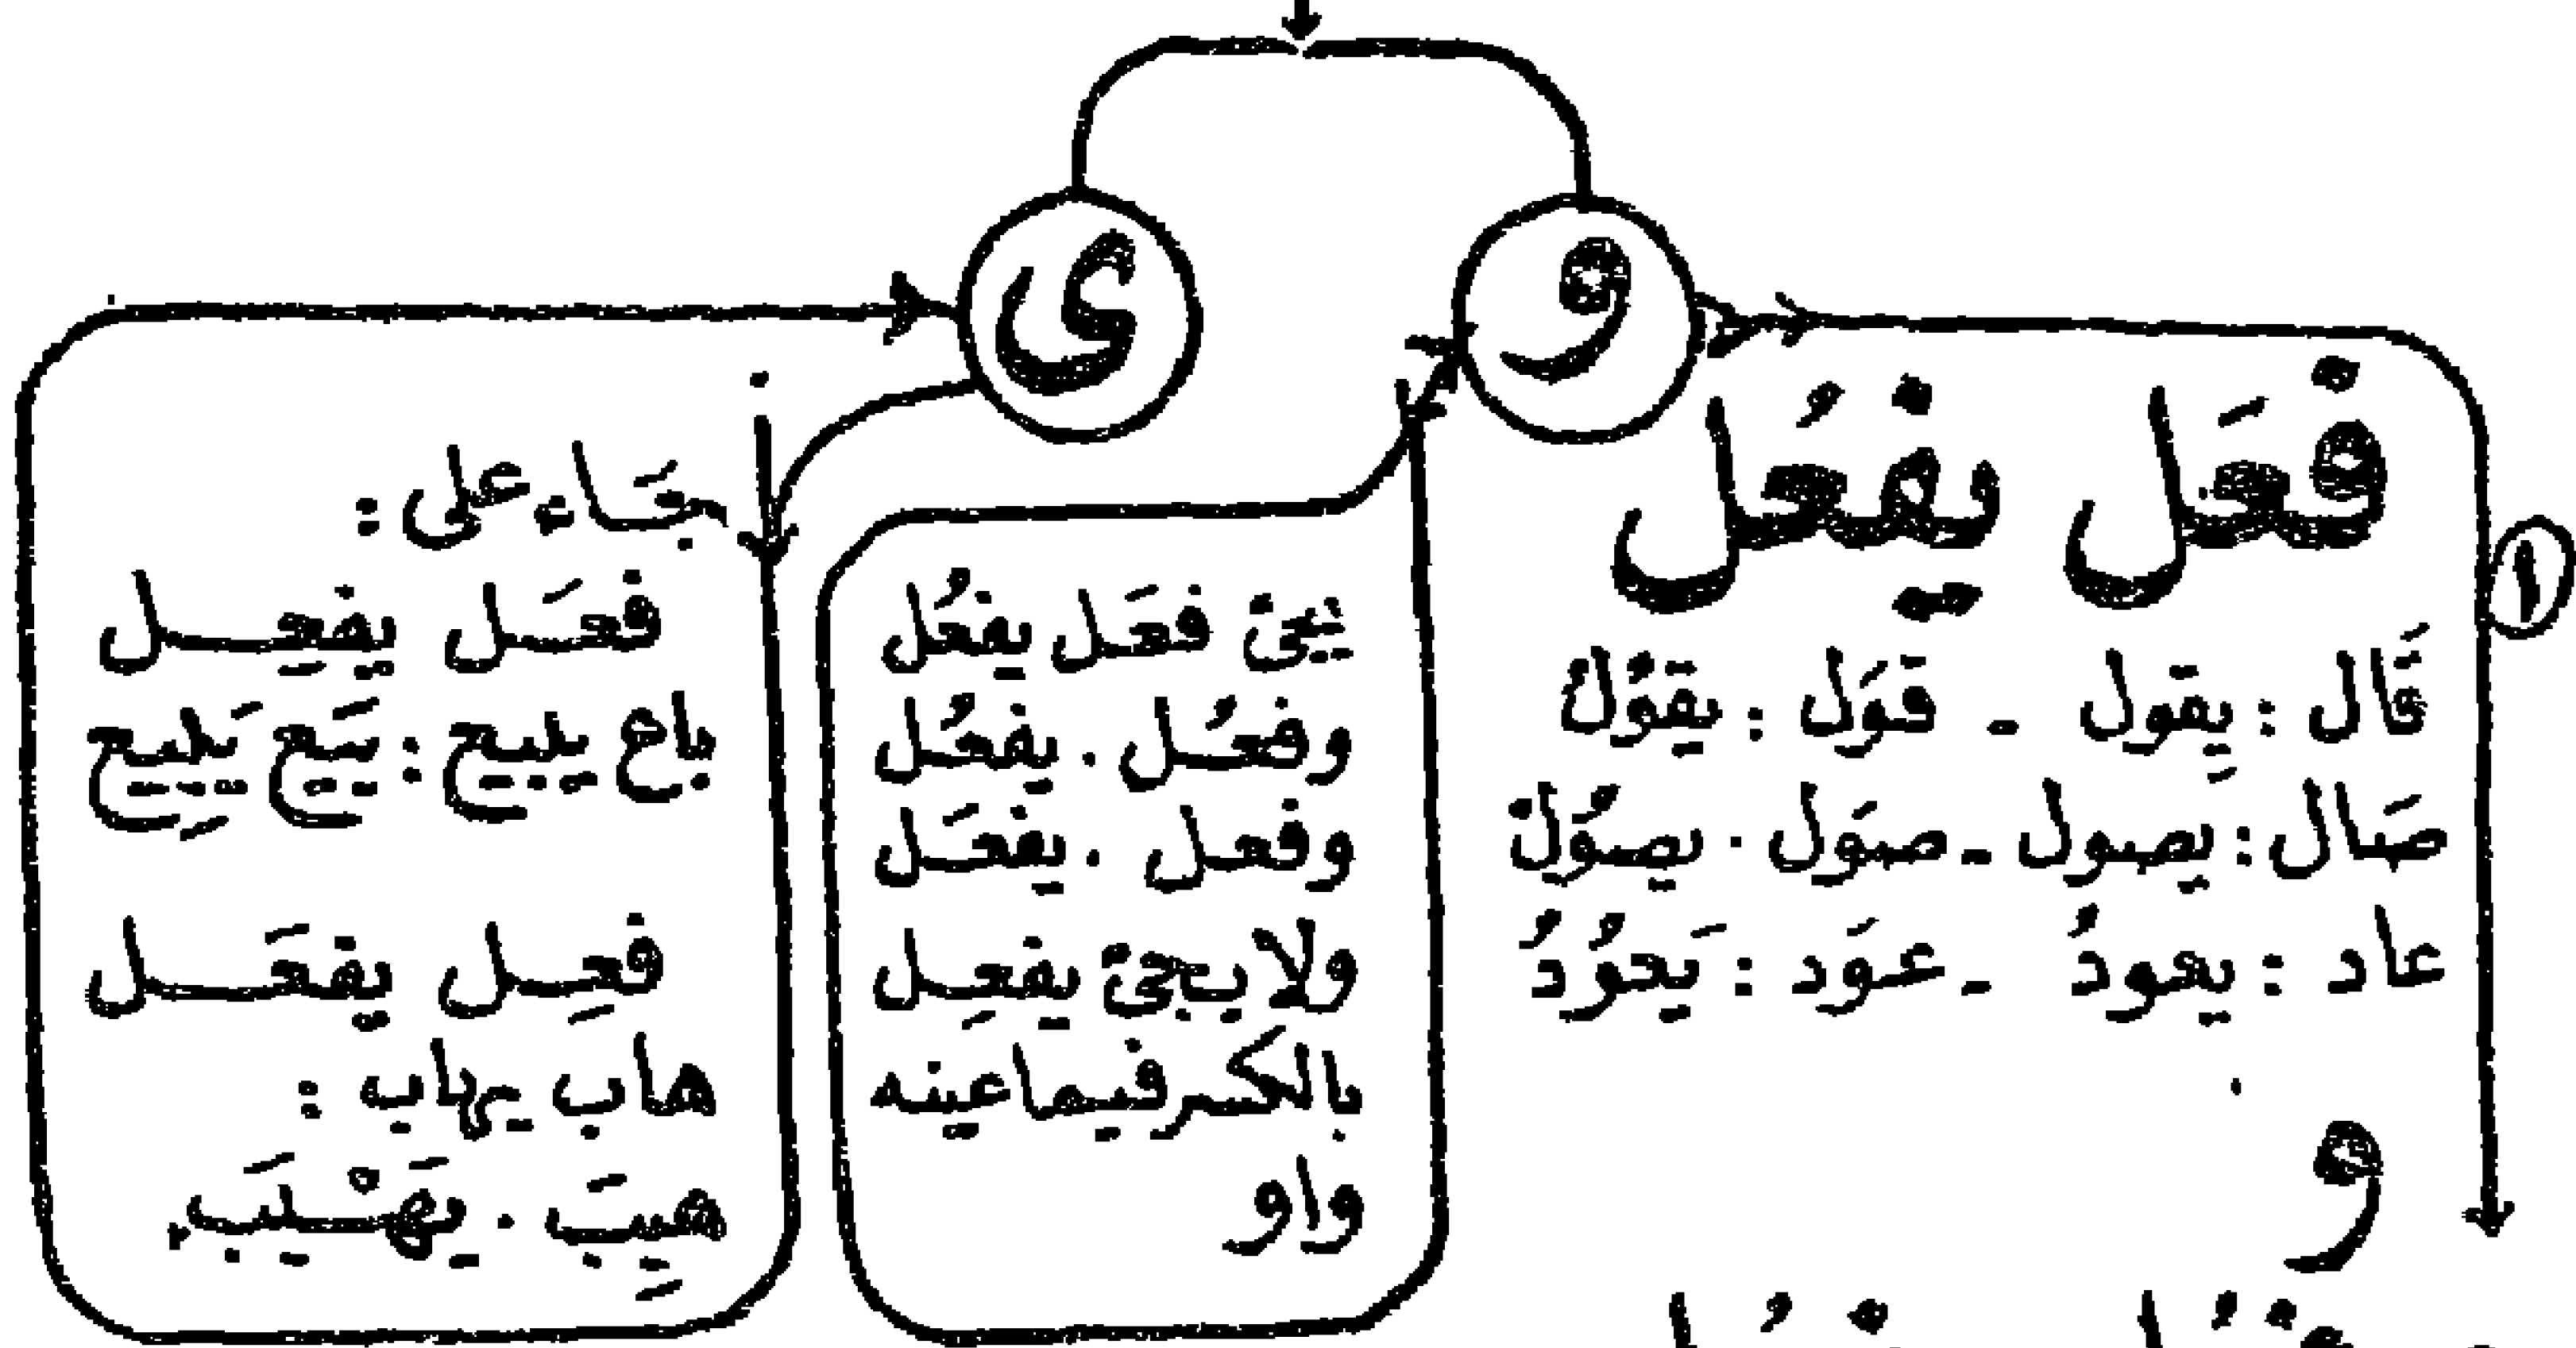 ى
و
فعَل يفعُل
١
قَال : يقول - قوَل : يقوُلُ
صَال : يصول - صوَل . يصوُلُ
عاد : يعودُ - عوَد : يَعوُدُ
و
يجئ فعَل يفعُل
وفعُل . يفعُل
وفعل . يفعَل
ولا يجئ يفعِل
بالكسر فيما عينه
واو
جَاء على :
فعَل يفعِل
باع يبيع : بَيَع يَبيِع
فعِل يفعَل
هاب يهاب :
هيِبَ . يَهْيَب